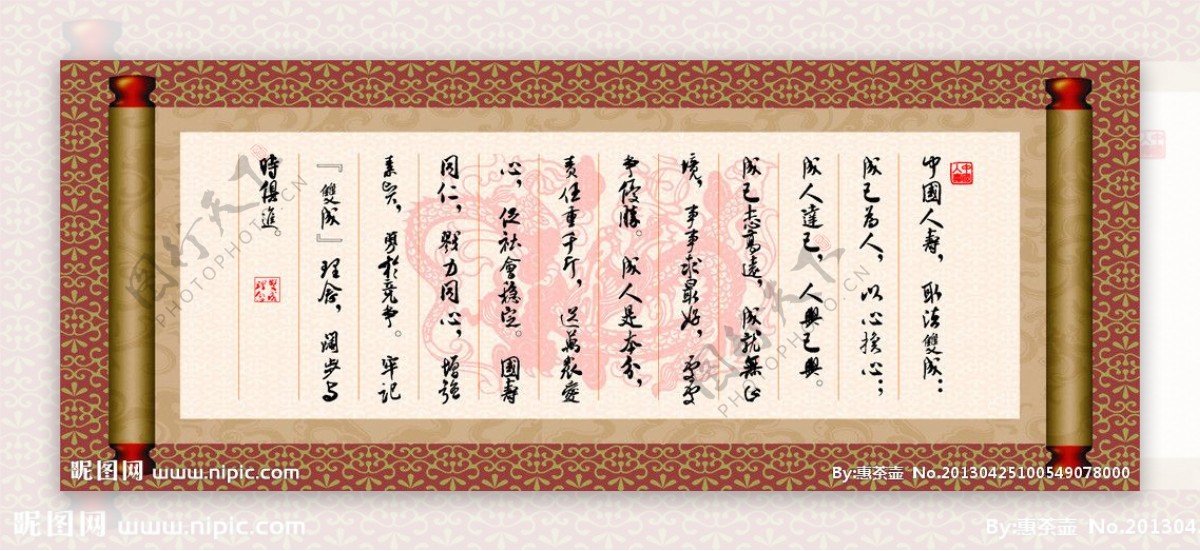 中國人壽，取法雙成：
成己為人，以心換心；
成人達己，人興己興。
成己志高遠，成就無止
境，事事求最好，層層
爭優勝。成人是本分，
責任重千斤，送萬家愛
心，促社會穩定。國壽
同仁，戮力同心，增強
素質，勇於競爭。牢記
『雙成』理念，闊步與
時俱進。
中國人壽
雙成理念
昵图网 www.nipic.com
By:惠茶壶 No.20130425100549078000
昵图网 www.nipic.com
By:惠茶壶 No.201304
图行天下 PHOTOPHOTO.CN